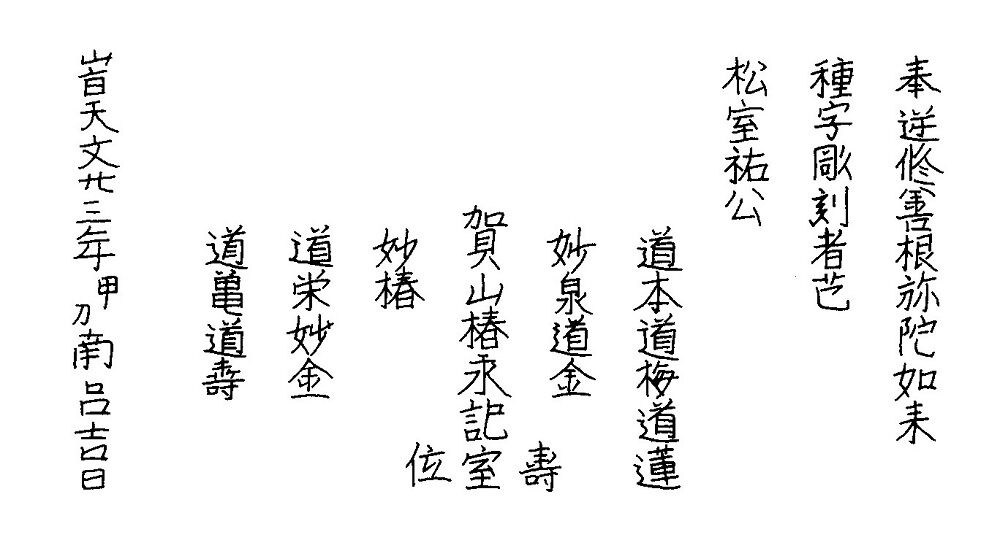 奉逆修善根弥陀如来
種字彫刻者芒
松室祐公
道本道梅道蓮
妙泉道金
壽
賀山椿永記室
位
妙椿
道栄妙金
道亀道壽
旹天文廿三年甲刀南呂吉日